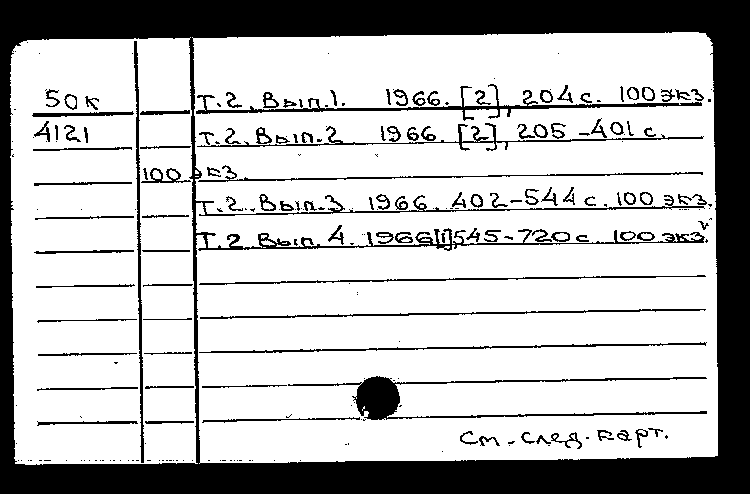 50к Т.2. Вып.1. 1966. [2], 204 с. 100 экз.
4121 Т.2. Вып.2 1966. [2], 205-401 с.
100 экз.
Т.2. Вып.3. 1966. 402-544 с. 100 экз.
Т.2 Вып. 4. 1966[1],545-720 с. 100 экз.
См. след. карт.